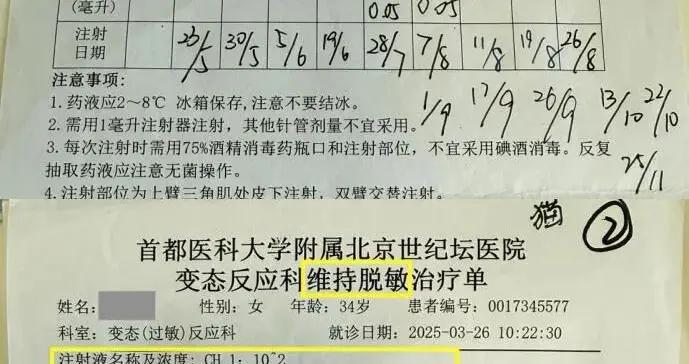 (毫升) 0.05 0.05
注射日期 23/5 30/5 5/6 19/6 28/7 7/8 11/8 19/8 26/8
注意事项:
1. 药液应2~8℃ 冰箱保存,注意不要结冰。
1/9 17/9 26/9 13/10 22/10
2. 需用1毫升注射器注射，其他针管剂量不宜采用。
3. 每次注射时需用75%酒精消毒药瓶口和注射部位，不宜采用碘酒消毒。反复
抽取药液应注意无菌操作。
25/11
4. 注射部位为上臂三角肌处皮下注射，双臂交替注射。
猫 2
首都医科大学附属北京世纪坛医院
变态反应科维持脱敏治疗单
姓名: 性别: 女 年龄: 34岁 患者编号: 0017345577
科室: 变态(过敏)反应科 就诊日期: 2025-03-26 10:22:30
注射液名称及浓度: CH 1: 10^2